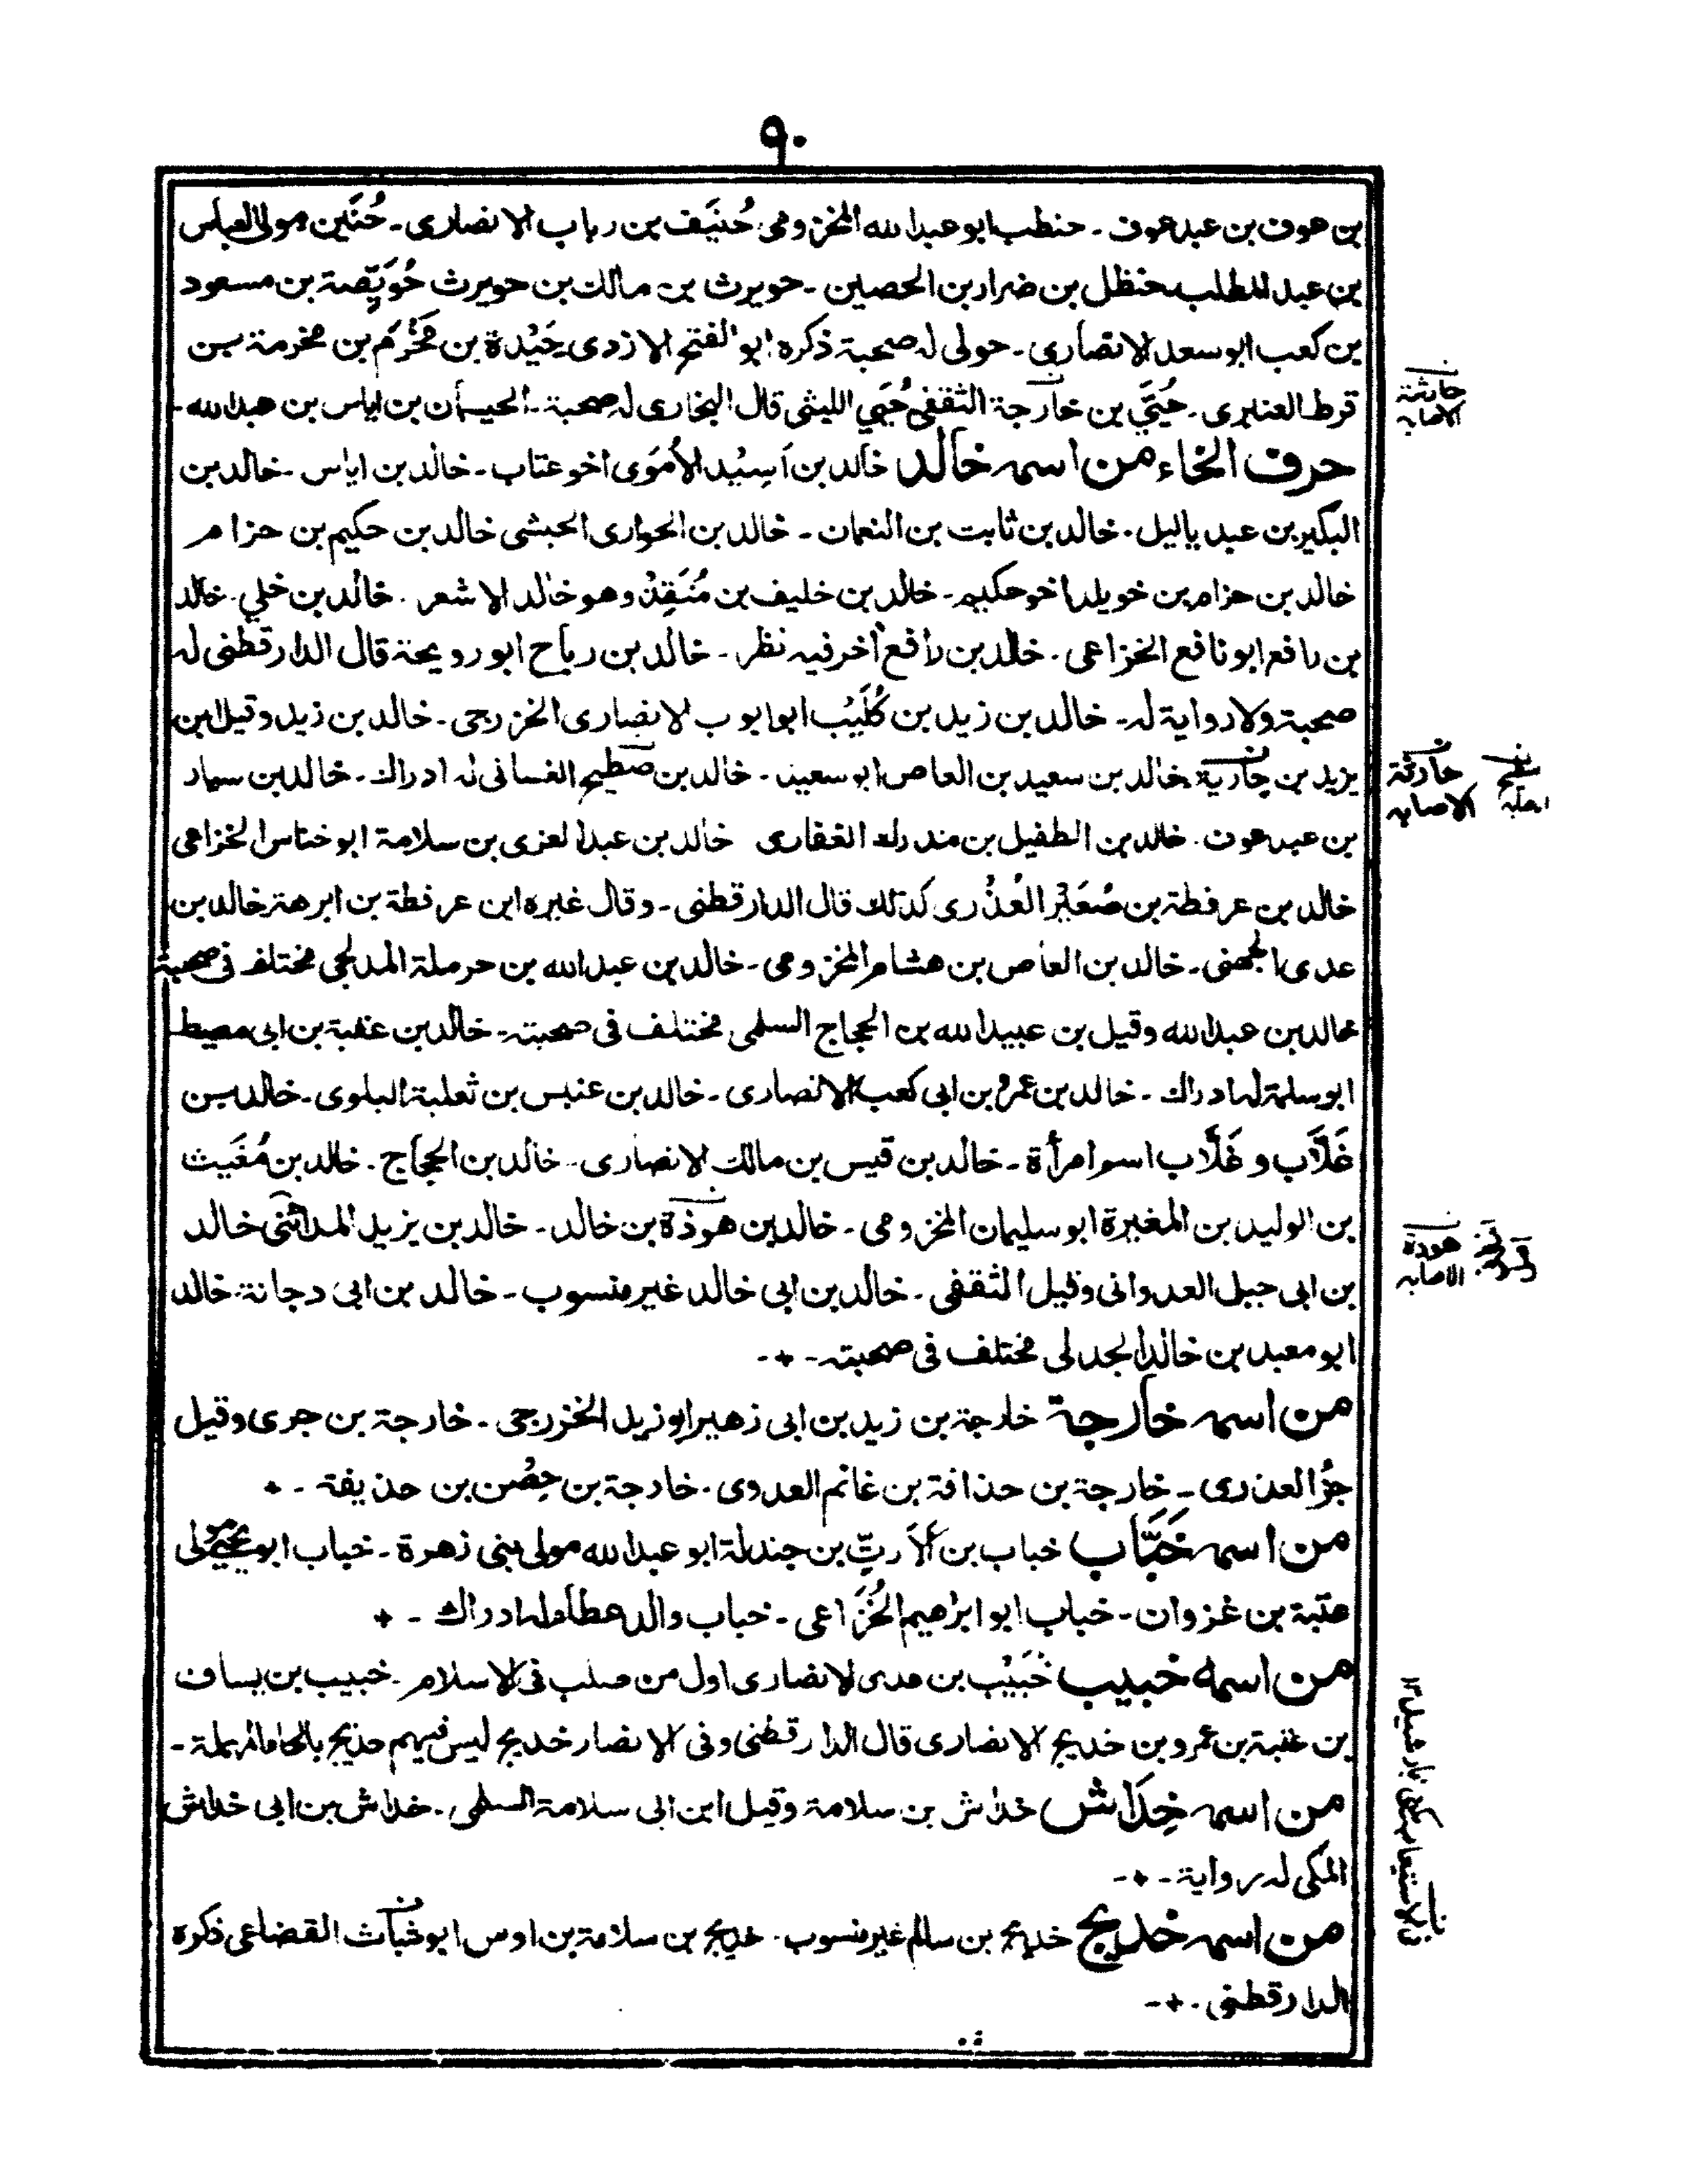 ٩٠
بن عوف بن عبد عوف ـ حنطب ابو عبد الله المخزومى حُنَيف بن رباب الانصارى ـ حُنَين مولى العباس
بن عبد المطلب حنظل بن ضرار بن الحصين ـ حويرث بن مالك بن حويرث حُوَيِّصة بن مسعود
بن كعب ابو سعد الانصارى ـ حولى له صحبة ذكره ابو الفتح الازدى حَيْدة بن مُخَرَّم بن مخرمة بن
قرط العنبرى ـ حُيَيّ بن خارجة الثقفى حُيَي الليثى قال البخارى له صحبة ـ الحيسمان بن اياس بن عبد الله ـ
حرف الخاء من اسمه خالد خالد بن اَسِيْد الأُمَوى اخو عتاب ـ خالد بن اياس ـ خالد بن
البكير بن عبد ياليل ۔ خالد بن ثابت بن النعمان ـ خالد بن الحوارى الحبشى خالد بن حكيم بن حزام
خالد بن حزام بن خويلد اخو حكيم ـ خالد بن خليف بن مُنَقِذ وهو خالد الاشعر ۔ خالد بن خلي ۔ خالد
بن رافع ابو نافع الخزاعى ۔ خالد بن رافع آخر فيه نظر ـ خالد بن رباح ابو رويحة قال الدارقطنى له
صحبة ولا رواية له ـ خالد بن زيد بن كُلَيْب ابو ايوب الانصارى الخزرجى ـ خالد بن زيد وقيل ابن
يزيد بن جارية خالد بن سعيد بن العاص ابو سعيد ـ خالد بن صطيح الغسانى له ادراك ـ خالد بن سيار
بن عبد عوف ۔ خالد بن الطفيل بن مدرك الغفارى خالد بن عبد العزى بن سلامة ابو خناس الخزاعى
خالد بن عرفطة بن صُعَيْر العُذْرى كذلك قال الدارقطنى ـ وقال غيره ابن عرفطة بن ابرهة خالد بن
عدى الجهنى ـ خالد بن العاص بن هشام المخزومى ـ خالد بن عبد الله بن حرملة المدلجى مختلف فى صحبته
خالد بن عبد الله وقيل بن عبيد الله بن الحجاج السلمى مختلف فى صحبته ـ خالد بن عقبة بن ابى معيط
ابو سلمة له ادراك ـ خالد بن عمرو بن ابى كعب الانصارى ـ خالد بن عنبس بن ثعلبة البلوى ـ خالد بن
غَلَّاب و غَلَّاب اسم امرأة ـ خالد بن قيس بن مالك الانصارى ـ خالد بن الحجاج ۔ خالد بن مُغَيث
بن الوليد بن المغيرة ابو سليمان المخزومى ـ خالد بن هوذة بن خالد ـ خالد بن يزيد المدائنى خالد
بن ابى جبل العدوانى وقيل الثقفى ـ خالد بن ابى خالد غير منسوب ـ خالد بن ابى دجانة خالد
ابو معبد بن خالد الجدلى مختلف فى صحبته ـ
من اسمه خارجة خارجة بن زيد بن ابى زهير ابو زيد الخزرجى ـ خارجة بن جرى وقيل
جزُ العذرى ـ خارجة بن حذافة بن غانم العدوى ۔ خارجة بن حِصْن بن حذيفة ـ
من اسمه خَبَّاب خباب بن الأرتّ بن جندلة ابو عبد الله مولى بنى زهرة ـ خباب ابو يحيى مولى
عتبة بن غزوان ـ خباب ابو ابراهيم الخُزَاعى ـ خباب والد عطاء له ادراك ـ
من اسمه خبيب خُبَيْب بن عدى الانصارى اول من صلب فى الاسلام ۔ خبيب بن يساف
بن عتبة بن عمرو بن خديج الانصارى قال الدارقطنى وفى الانصار خديج ليس فيهم حديج بالحاء المهملة ـ
من اسمه خِدَاش خداش بن سلامة وقيل ابن ابى سلامة السلمى ۔ خداش بن ابى خداش
المكى له رواية ـ
من اسمه خديج خديج بن سالم غير منسوب ۔ خديج بن سلامة بن اوس ابو شباث القضاعى ذكره
الدارقطنى ۔
حارثة
الاصابه
حارثة
الاصابه
هودة
الاصابه